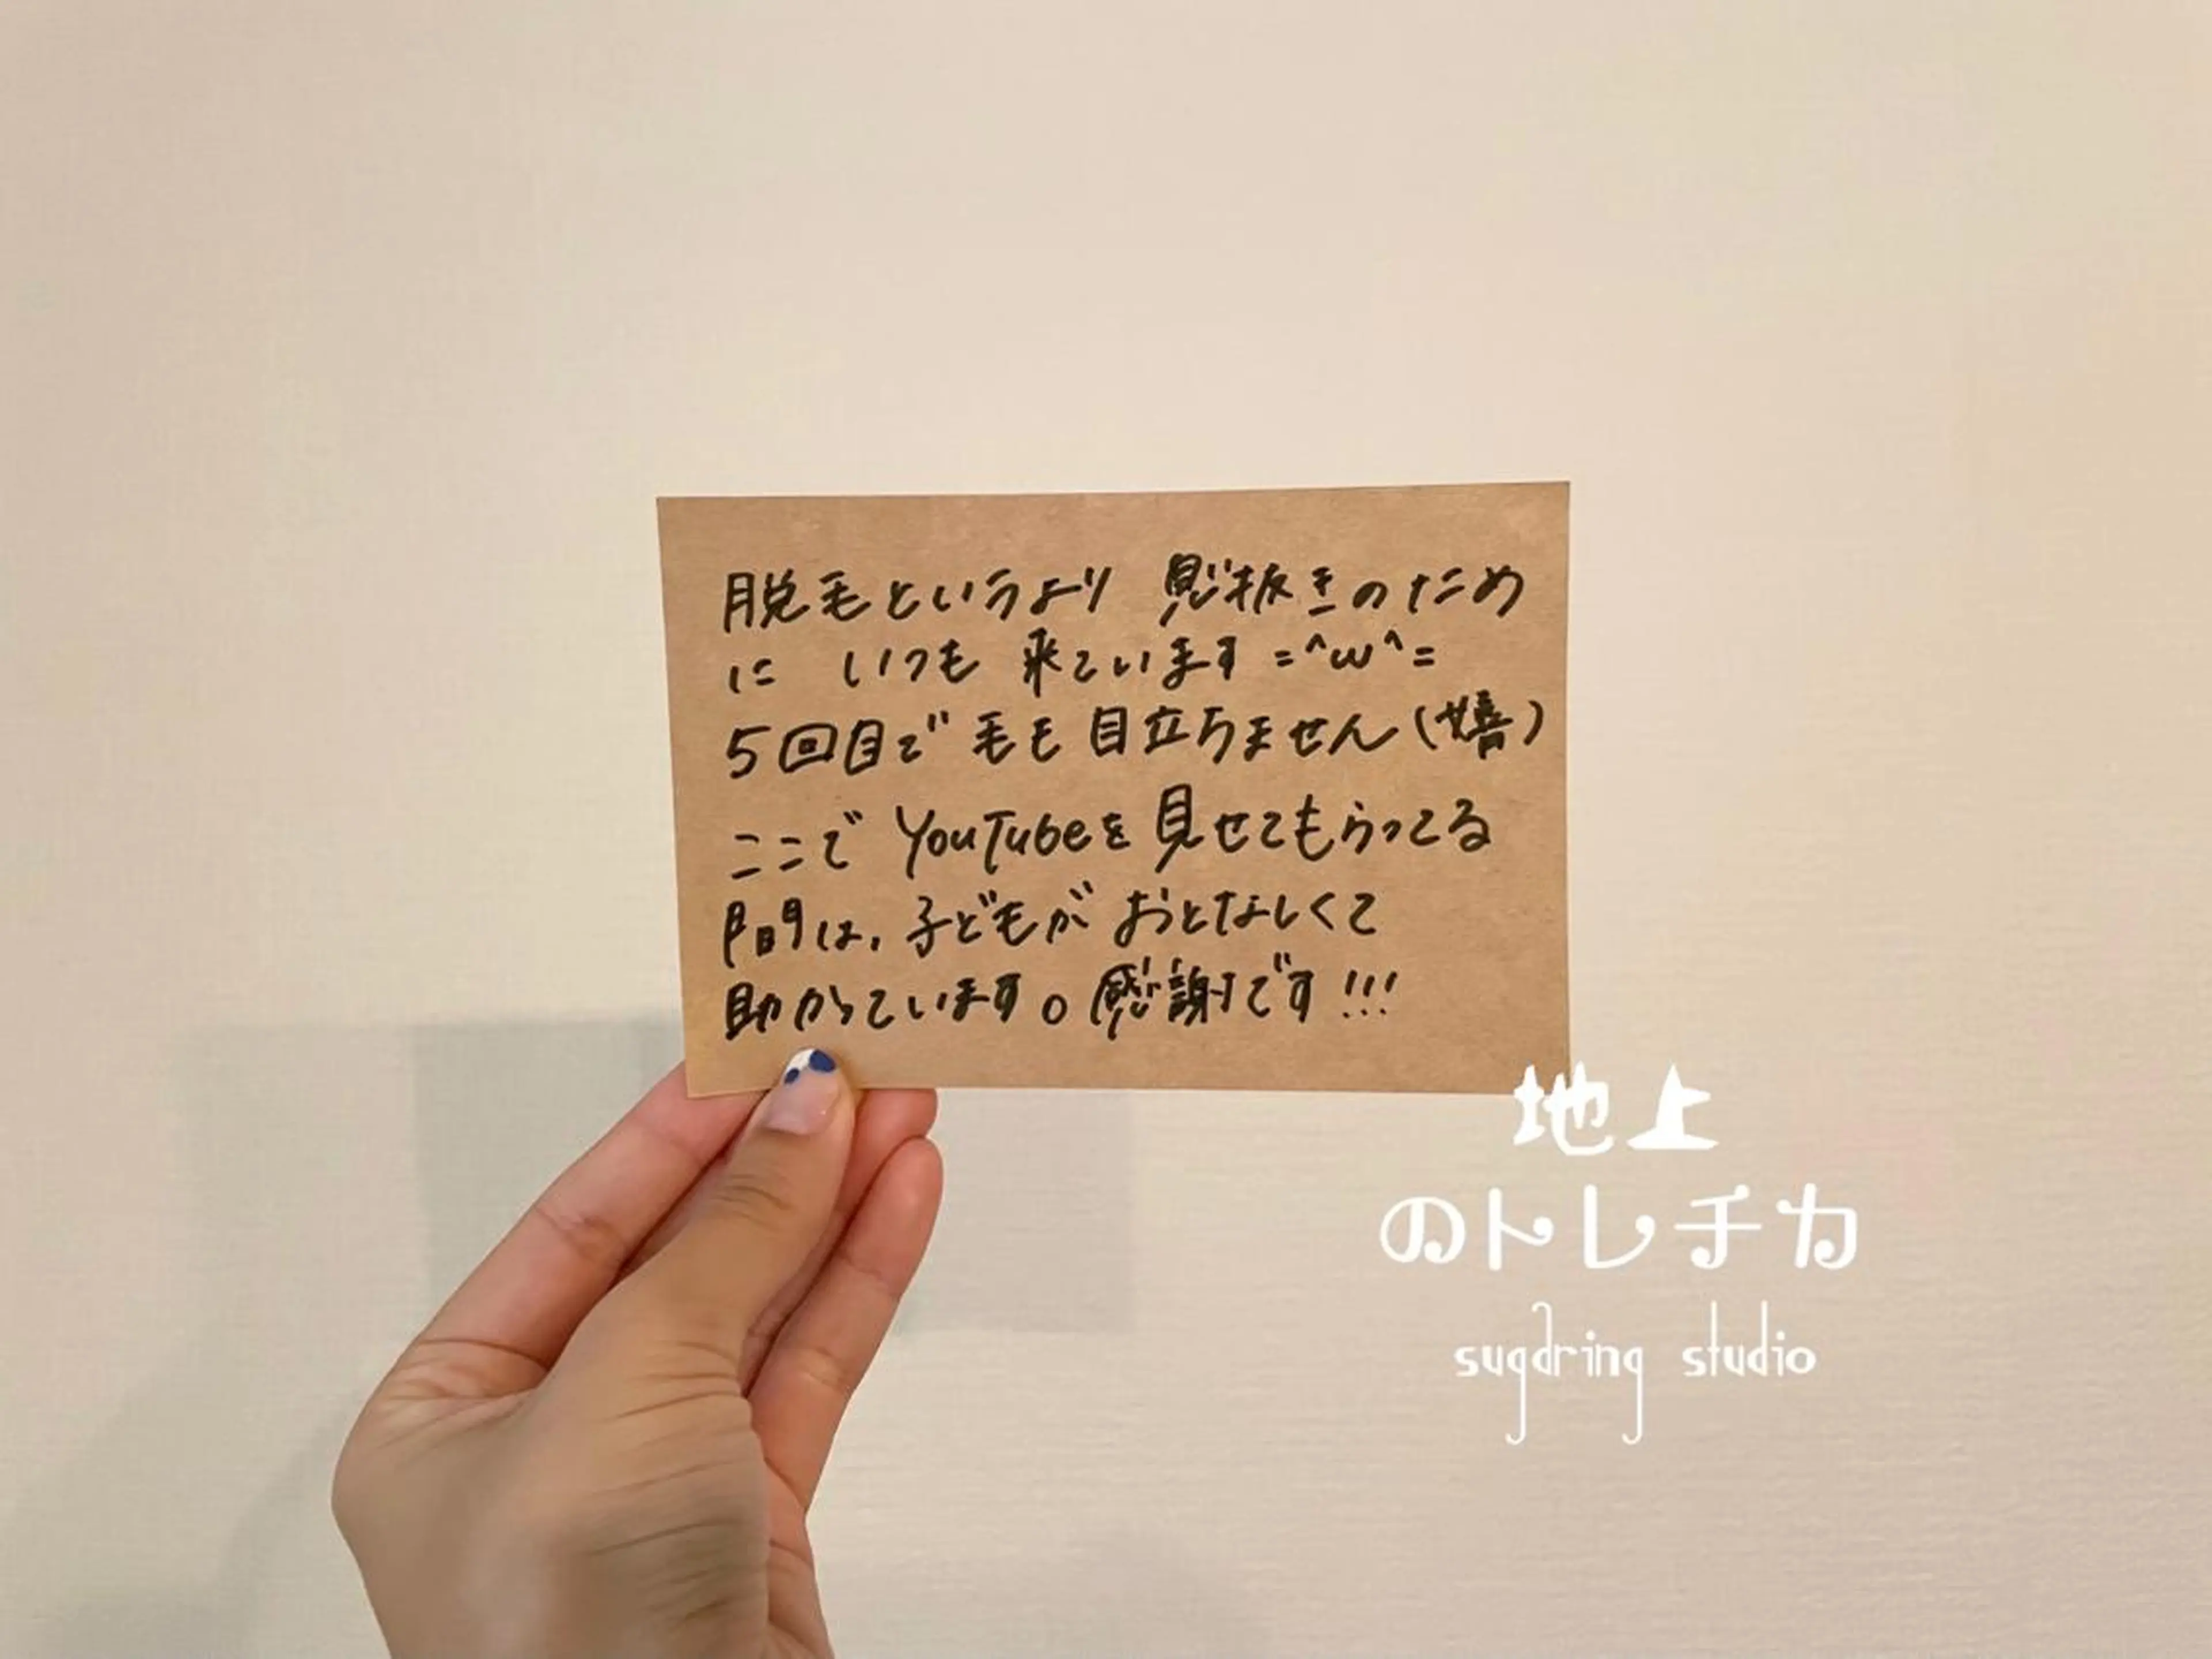 脱毛というより 息抜きのため
に いつも 来ています =^ω^=
5回目で 毛も 目立ちません(嬉)
ここで YouTubeを 見せてもらってる
間は、子どもが おとなしくて
助かっています。感謝です!!!
地上
のトレチカ
sugaring studio